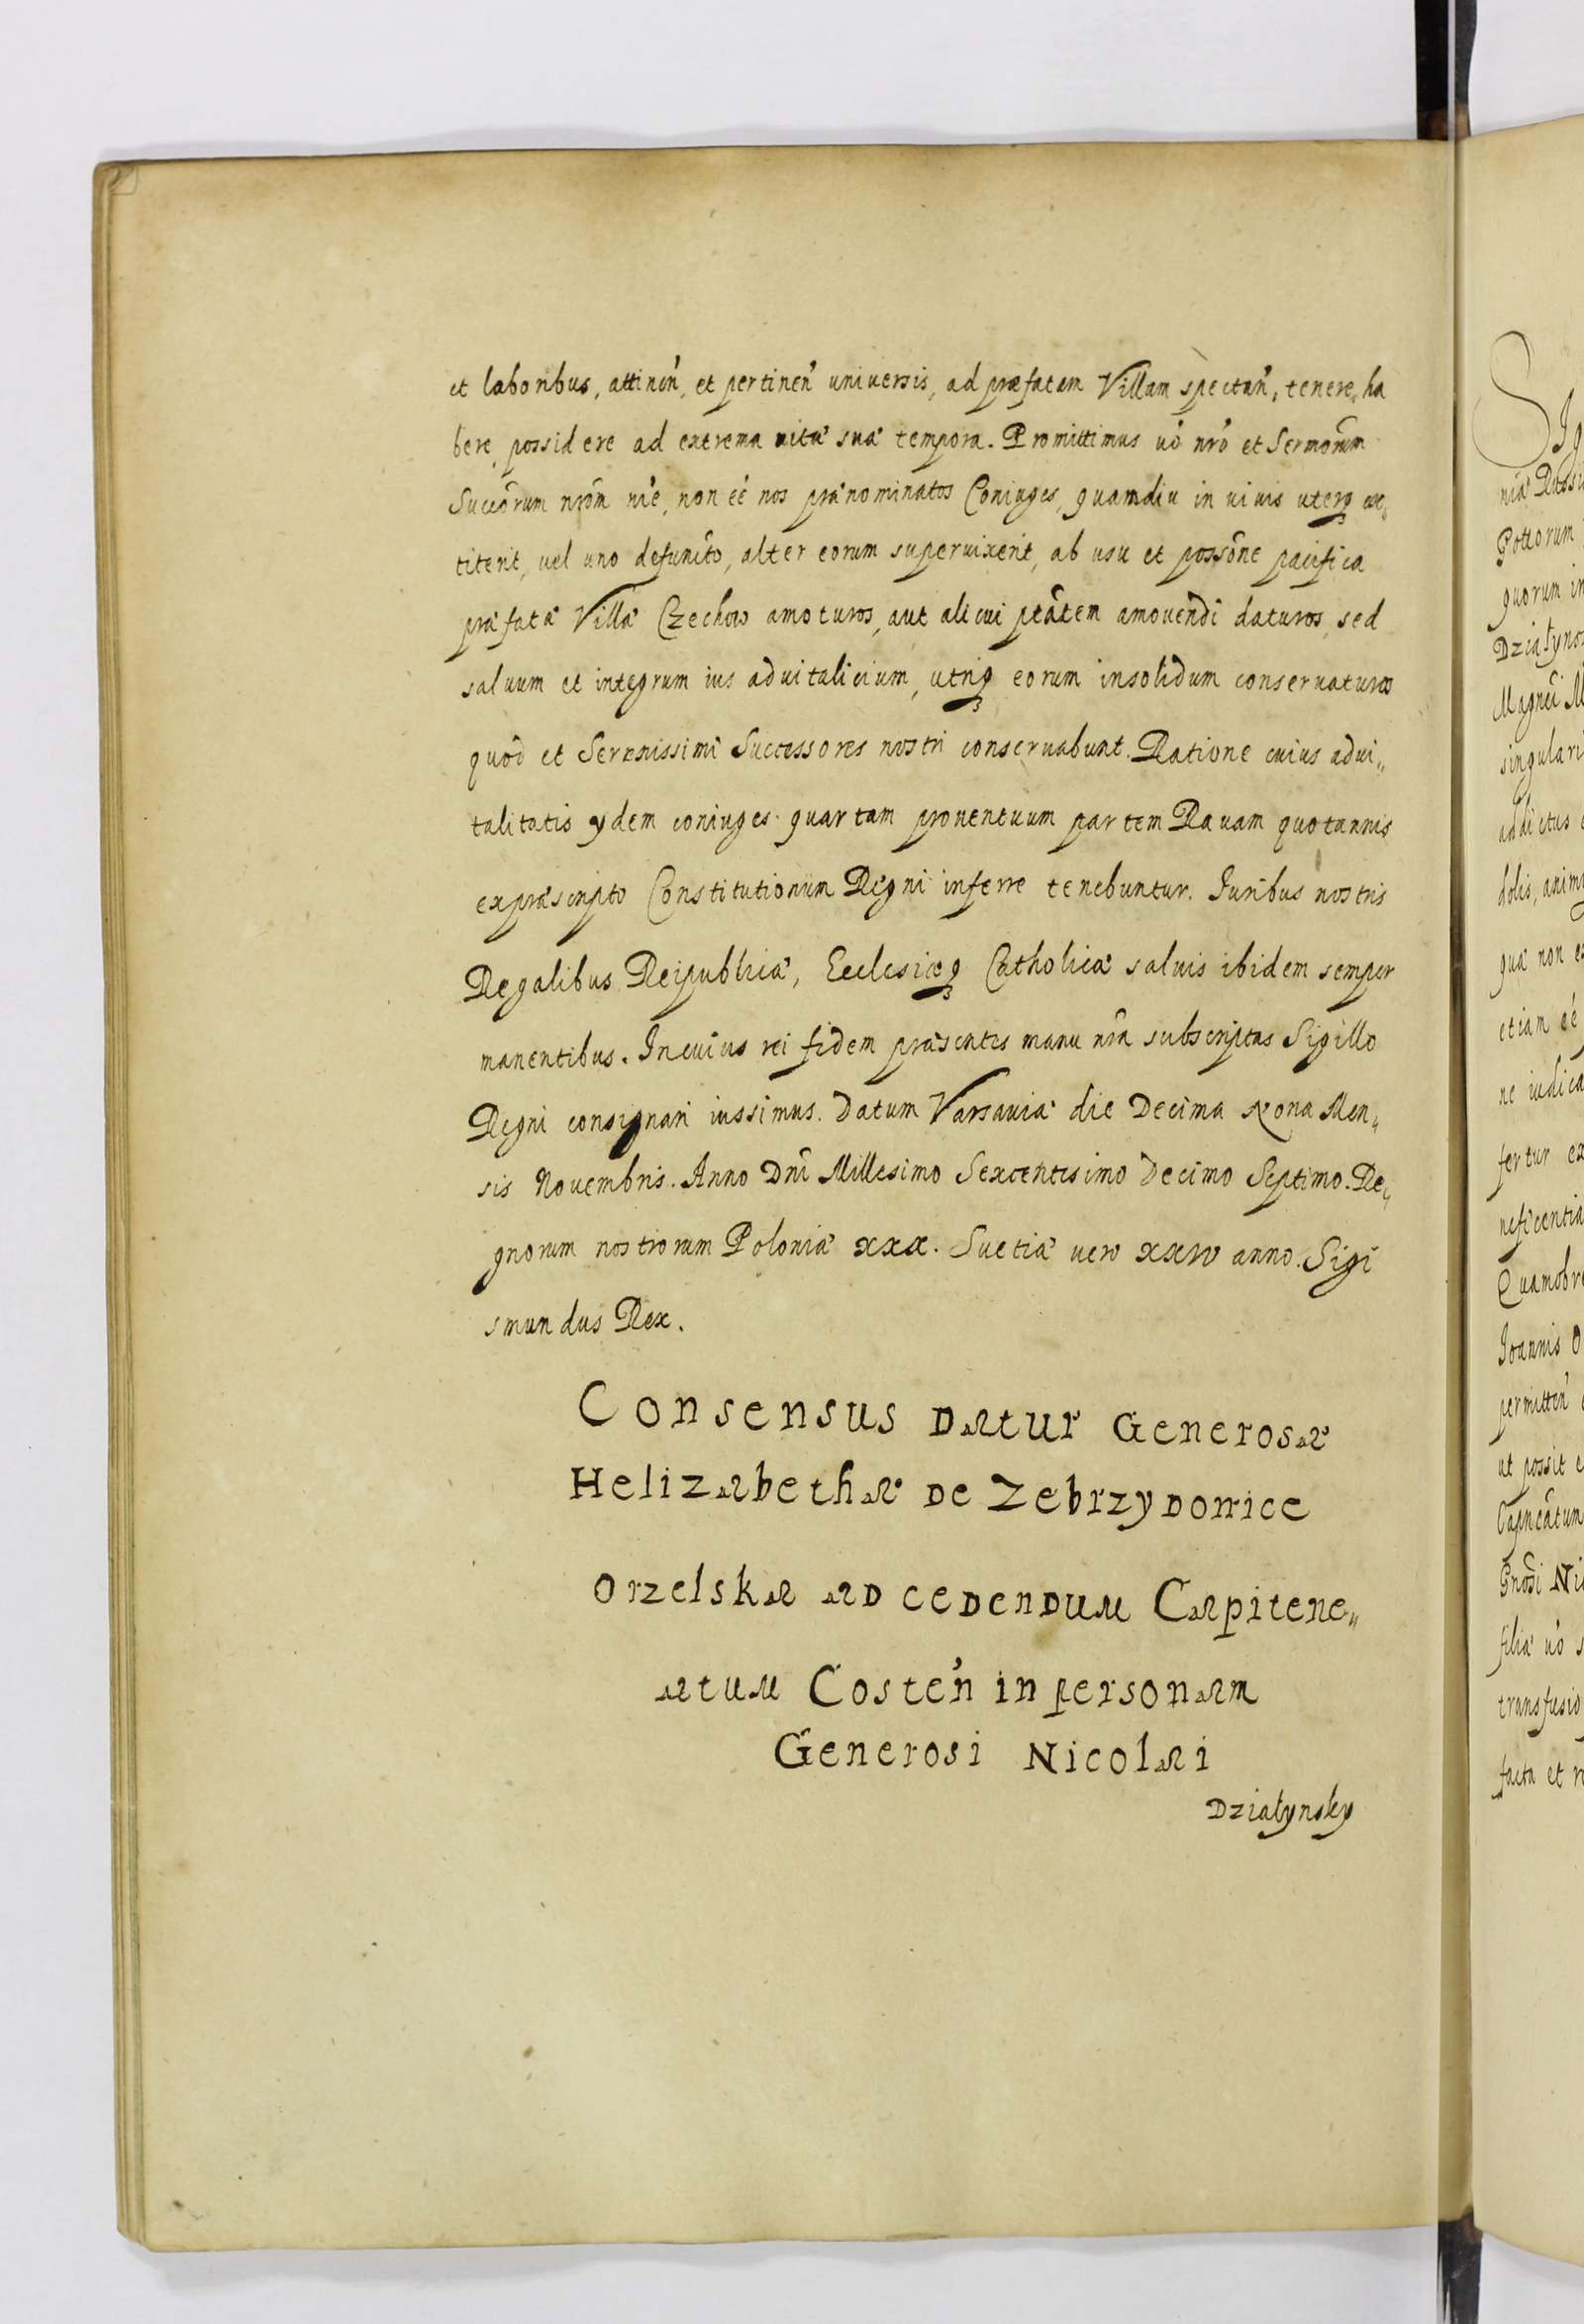 et laboribus, attinen̄, et pertinen̄ uniuersis, ad præfatam Villam spectan̄, tenere, ha
bere, possidere ad extrema uitæ suæ tempora. Promittimus uō nrō et Sermorum
Succōrum nrōm nīe, non eē nos prænominatos Coniuges, quamdiu in uiuis uterq; ex„
titerit, uel uno defuncto, alter eorum superuixerit, ab usu et possōne pacifica
præfatæ Villæ Czechow amoturos, aut alicui ptātem amouendi daturos, sed
saluum et integrum ius aduitalicium, utriq; eorum insolidum conseruaturos
quōd et Serenissimi Successores nostri conseruabunt. Ratione cuius adui„
talitatis ydem coniuges quartam prouentuum partem Rauam quotannis
expræscripto Constitutionum Regni inferre tenebuntur. Iuribus nostris
Regalibus Reipublicæ, Ecclesiæq; Catholicæ saluis ibidem semper
manentibus. Incuius rei fidem præsentes manu nrā subscriptas Sigillo
Regni consignari iussimus. Datum Varsauiæ die Decima Nona Men„
sis Nouembris. Anno Dnī Millesimo Sexcentesimo Decimo Septimo. Re„
gnorum nostrorum Poloniæ xxx. Suetiæ uero xxiv anno. Sigi
smundus Rex.
Consensus Datur Generosæ
Helizabethæ De Zebrzydowice
Orzelska AD ceDenDum Capitene„
atum Costen̄ in personam
Generosi Nicolai
Działynsky